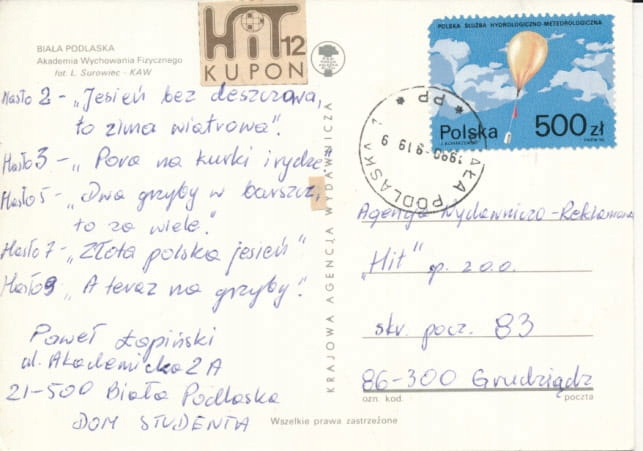 BIAŁA PODLASKA
Akademia Wychowania Fizycznego
fot. Ł. Surowiec - KAW
HiT 12
KUPON
Hasło 2 - „Jesień bez deszczowa,
to zima wiatrowa".
Hasło 3 - „Pora na kurki i rydze
Hasło 5 - „Dwa grzyby w barszcz,
to za wiele."
Hasło 7 - „Złota polska jesień"
Hasło 9 „A teraz na grzyby".
Paweł Łapiński
ul. Akademicka 2A
21-500 Biała Podlaska
DOM STUDENTA
KRAJOWA AGENCJA WYDAWNICZA
Wszelkie prawa zastrzeżone
POLSKA SŁUŻBA HYDROLOGICZNO-METEOROLOGICZNA
Polska 500 zł
BIAŁA PODLASKA 1
* PP *
Agencja Wydawniczo-Reklamowa
„Hit" sp. z o.o.
skr. pocz. 83
86-300 Grudziądz
ozn. kod. poczta